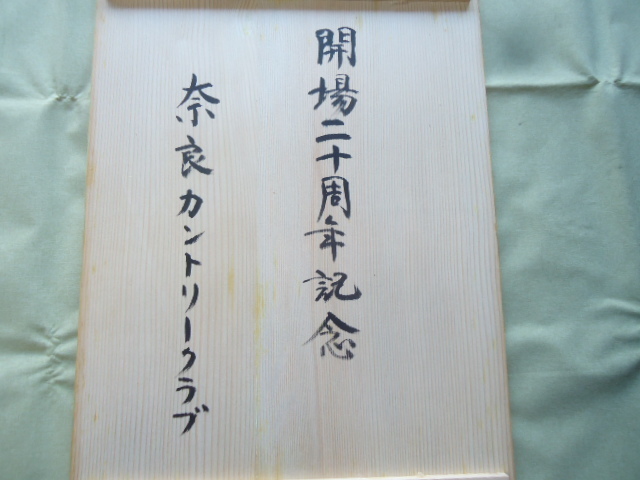 開場二十周年記念
奈良カントリークラブ